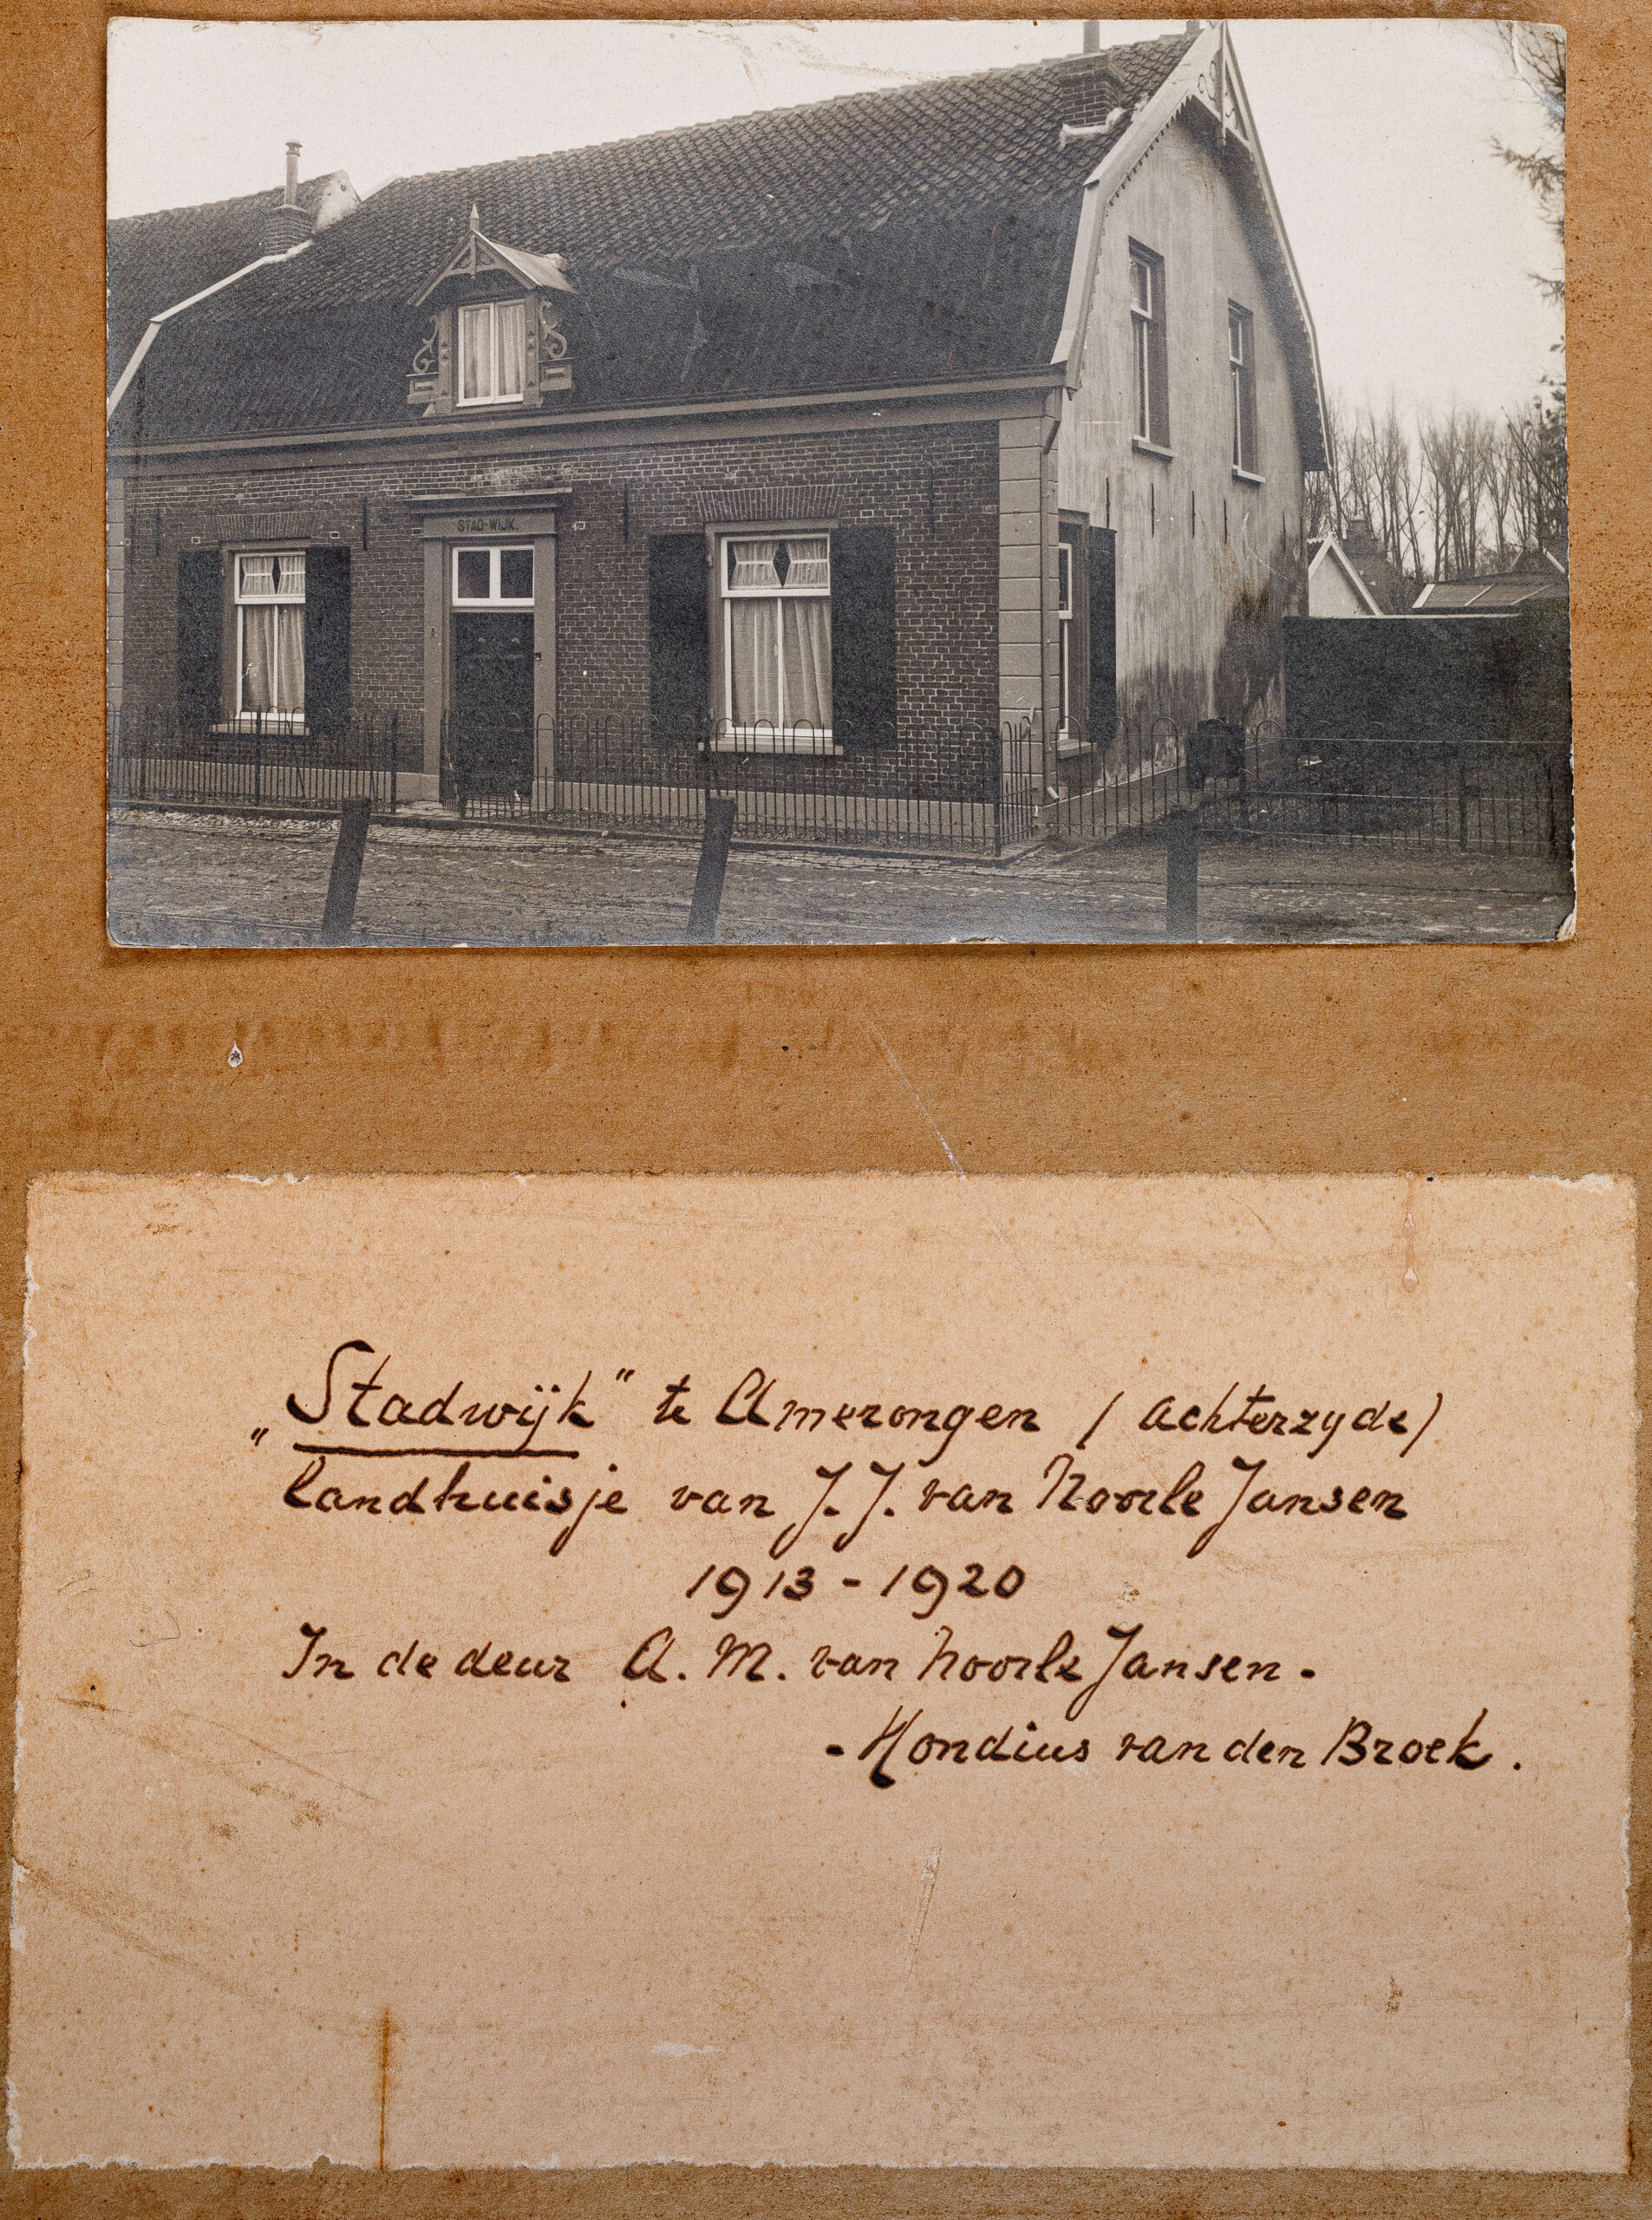 STAD-WIJK.
„Stadwijk" te Amerongen (achterzyde)
landhuisje van J. J. van Noorle Jansen
1913 - 1920
In de deur A. M. van Noorle Jansen -
- Hondius van den Broek.